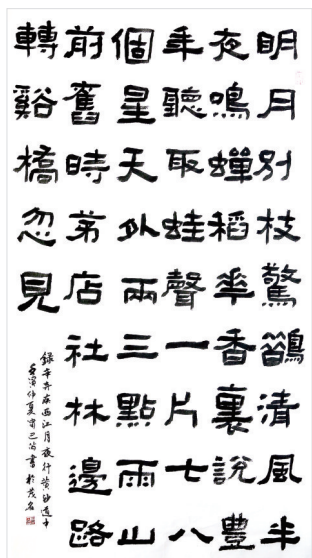 明月別枝驚鵲清風半
夜鳴蟬稻華香裏說豐
年聽取蛙聲一片七八
個星天外兩三點雨山
前舊時茅店社林邊路
轉谿橋忽見
錄辛弃疾西江月夜行黃沙道中
壬寅仲夏書於茂名